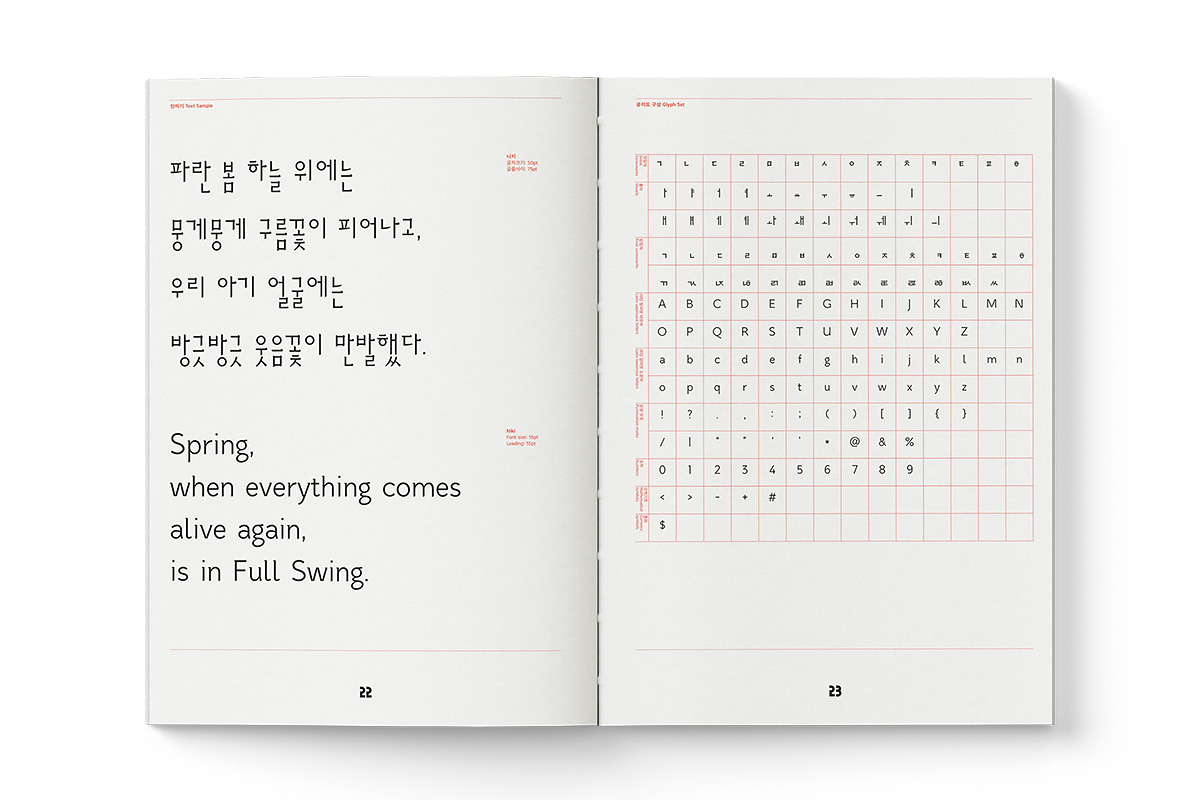 판짜기 Text Sample
파란 봄 하늘 위에는
뭉게뭉게 구름꽃이 피어나고,
우리 아기 얼굴에는
방긋방긋 웃음꽃이 만발했다.
니키
글자크기: 50pt
글줄사이: 75pt
Spring,
when everything comes
alive again,
is in Full Swing.
Niki
Font size: 55pt
Leading: 55pt
22
글리프 구성 Glyph Set
ㄱ ㄴ ㄷ ㄹ ㅁ ㅂ ㅅ ㅇ ㅈ ㅊ ㅋ ㅌ ㅍ ㅎ
Vowels
ㅏ ㅑ ㅓ ㅕ ㅗ ㅛ ㅜ ㅠ ㅡ ㅣ
ㅐ ㅒ ㅔ ㅖ ㅘ ㅙ ㅚ ㅝ ㅞ ㅟ ㅢ
Final consonants
ㄱ ㄴ ㄷ ㄹ ㅁ ㅂ ㅅ ㅇ ㅈ ㅊ ㅋ ㅌ ㅍ ㅎ
ㄲ ㄳ ㄵ ㄶ ㄺ ㄻ ㄼ ㄽ ㄾ ㄿ ㅀ ㅄ ㅆ
A B C D E F G H I J K L M N
O P Q R S T U V W X Y Z
a b c d e f g h i j k l m n
o p q r s t u v w x y z
Punctuation marks
! ? . , : ; ( ) [ ] { }
/ | “ ” ‘ ’ * @ & %
Numbers
0 1 2 3 4 5 6 7 8 9
< > - + #
$
23